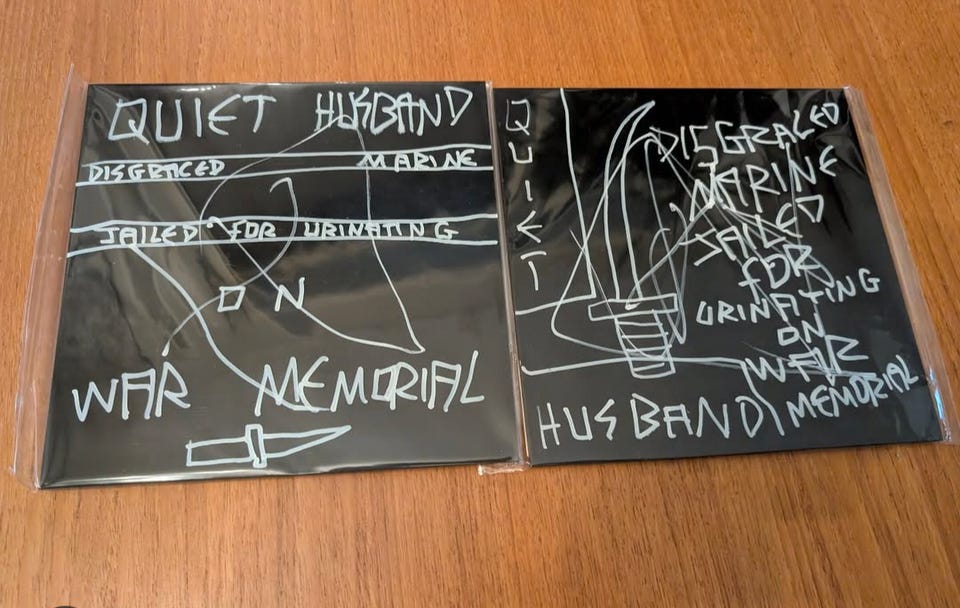 QUIET HUSBAND
DISGRACED MARINE
JAILED FOR URINATING
ON
WAR MEMORIAL
QUIET
HUSBAND
DISGRACED
MARINE
JAILED
FOR
URINATING
ON
WAR
MEMORIAL